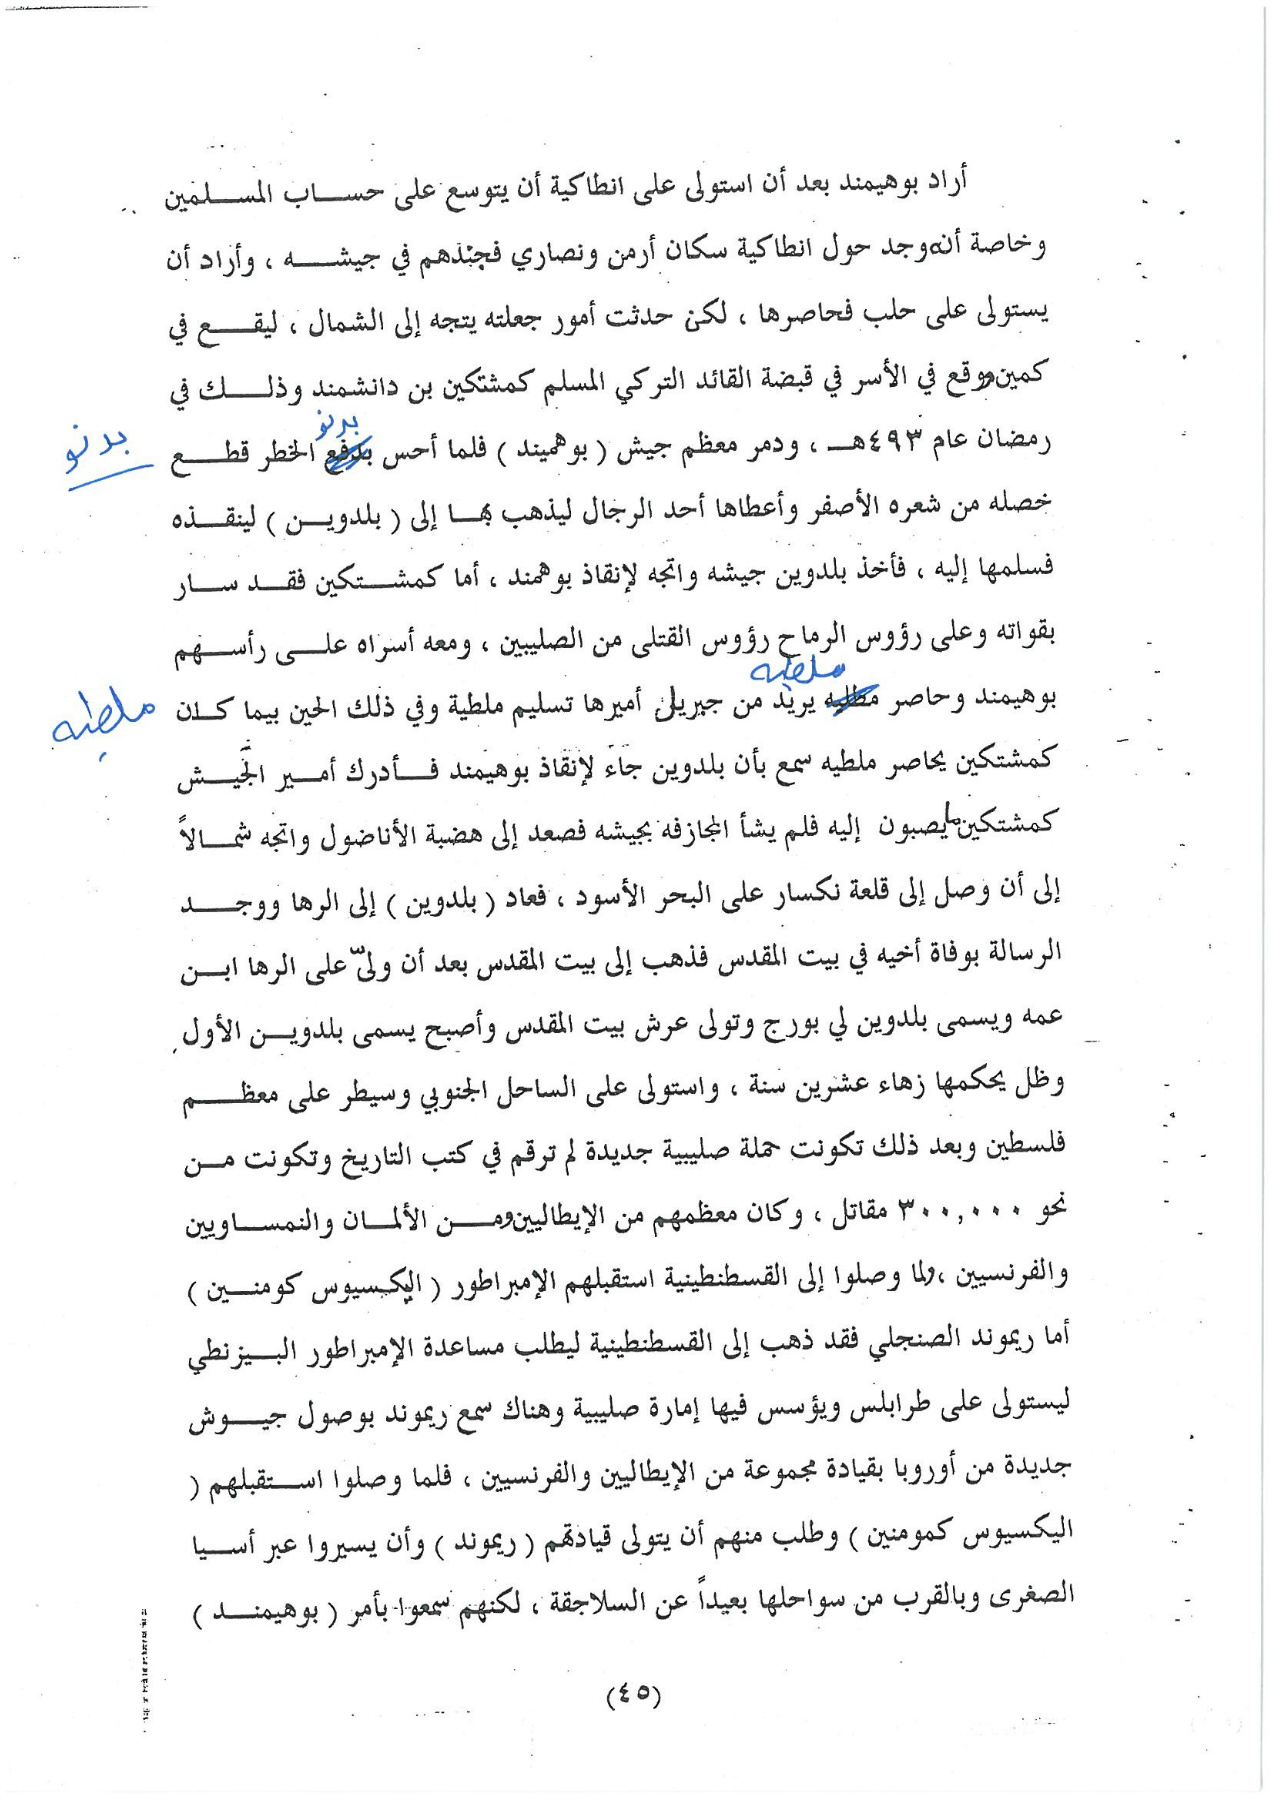 أراد بوهيمند بعد أن استولى على انطاكية أن يتوسع على حساب المسلمين
وخاصة أنه وجد حول انطاكية سكان أرمن ونصاري فجندهم في جيشه ، وأراد أن
يستولى على حلب فحاصرها ، لكن حدثت أمور جعلته يتجه إلى الشمال ، ليقع في
كمين ووقع في الأسر في قبضة القائد التركي المسلم كمشتكين بن دانشمند وذلك في
بدنو
رمضان عام ٤٩٣هـ ، ودمر معظم جيش ( بوهميند ) فلما أحس بدفع الخطر قطع
بدنو
خصله من شعره الأصفر وأعطاها أحد الرجال ليذهب بها إلى ( بلدوين ) لينقذه
فسلمها إليه ، فأخذ بلدوين جيشه واتجه لإنقاذ بوهمند ، أما كمشتكين فقد سار
بقواته وعلى رؤوس الرماح رؤوس القتلى من الصليبين ، ومعه أسراه على رأسهم
ملطيه
بوهيمند وحاصر مطليه يريد من جبريل أميرها تسليم ملطية وفي ذلك الحين بيما كان
ملطيه
كمشتكين يحاصر ملطيه سمع بأن بلدوين جاء لإنقاذ بوهيمند فأدرك أمير الجيش
كمشتكين ما يصبون إليه فلم يشأ المجازفه بجيشه فصعد إلى هضبة الأناضول واتجه شمالاً
إلى أن وصل إلى قلعة نكسار على البحر الأسود ، فعاد ( بلدوين ) إلى الرها ووجد
الرسالة بوفاة أخيه في بيت المقدس فذهب إلى بيت المقدس بعد أن ولىّ على الرها ابن
عمه ويسمى بلدوين لي بورج وتولى عرش بيت المقدس وأصبح يسمى بلدوين الأول
وظل يحكمها زهاء عشرين سنة ، واستولى على الساحل الجنوبي وسيطر على معظم
فلسطين وبعد ذلك تكونت حملة صليبية جديدة لم ترقم في كتب التاريخ وتكونت من
نحو ٣٠٠,٠٠٠ مقاتل ، وكان معظمهم من الإيطاليين ومن الألمان والنمساويين
والفرنسيين ، ولما وصلوا إلى القسطنطينية استقبلهم الإمبراطور ( اليكسيوس كومنين )
أما ريموند الصنجلي فقد ذهب إلى القسطنطينية ليطلب مساعدة الإمبراطور البيزنطي
ليستولى على طرابلس ويؤسس فيها إمارة صليبية وهناك سمع ريموند بوصول جيوش
جديدة من أوروبا بقيادة مجموعة من الإيطاليين والفرنسيين ، فلما وصلوا استقبلهم (
اليكسيوس كمومنين ) وطلب منهم أن يتولى قيادتهم ( ريموند ) وأن يسيروا عبر أسيا
الصغرى وبالقرب من سواحلها بعيداً عن السلاجقة ، لكنهم سمعوا بأمر ( بوهيمند )
(٤٥)